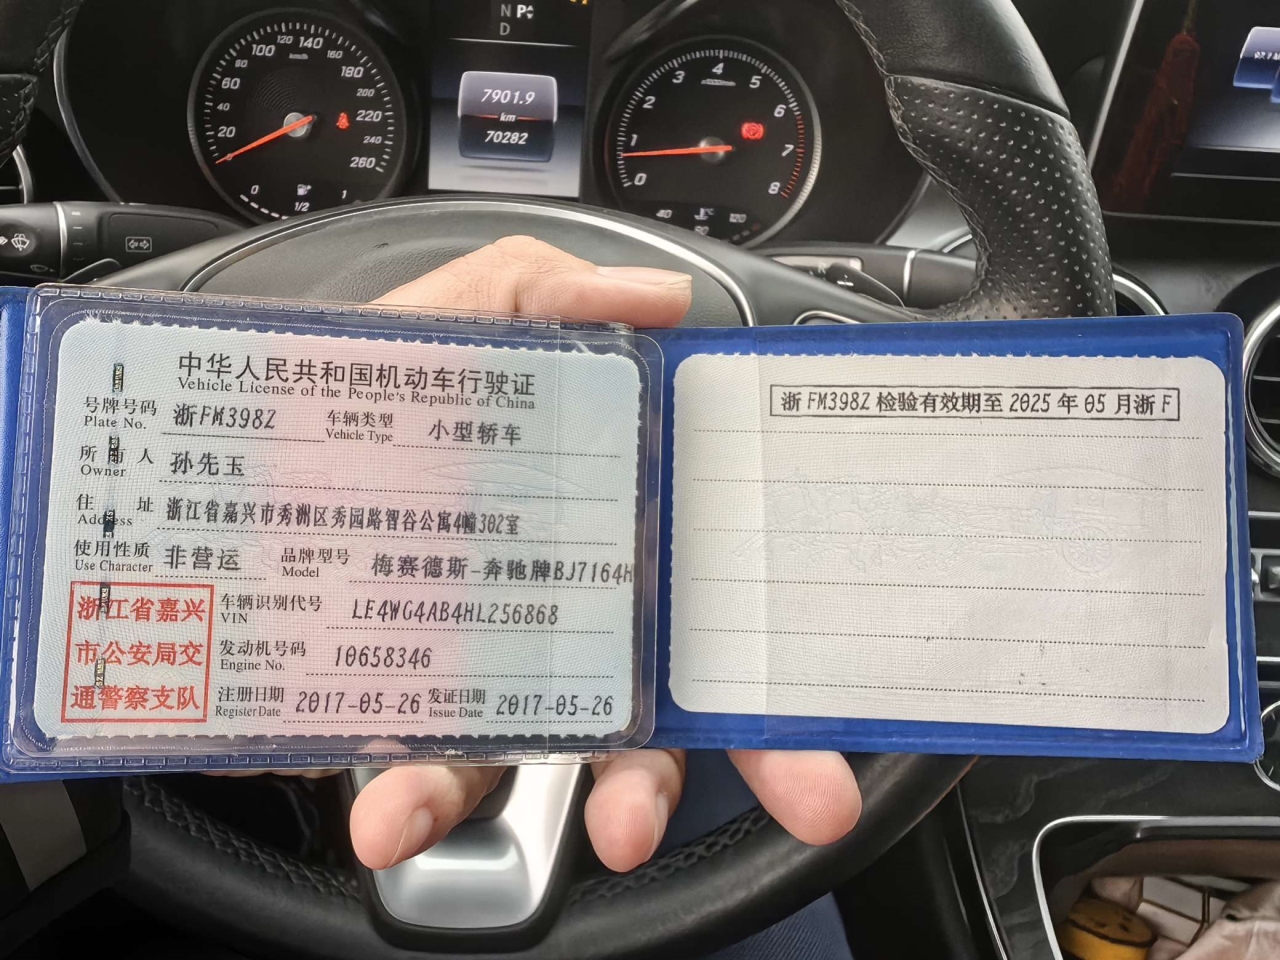 N P
D
0 20 40 60 80 100 120 140 160 180 200 220 240 260
km/h
0 1/2 1
7901.9
km
70282
0 1 2 3 4 5 6 7 8
40 80 120
中华人民共和国机动车行驶证
Vehicle License of the People's Republic of China
号牌号码 浙FM398Z 车辆类型 小型轿车
Plate No. Vehicle Type
所有人 孙先玉
Owner
住址 浙江省嘉兴市秀洲区秀园路智谷公寓4幢302室
Address
使用性质 非营运 品牌型号 梅赛德斯-奔驰牌BJ7164H
Use Character Model
浙江省嘉兴
市公安局交
通警察支队
车辆识别代号 LE4WG4AB4HL256868
VIN
发动机号码 10658346
Engine No.
注册日期 2017-05-26 发证日期 2017-05-26
Register Date Issue Date
浙FM398Z检验有效期至2025年05月浙F